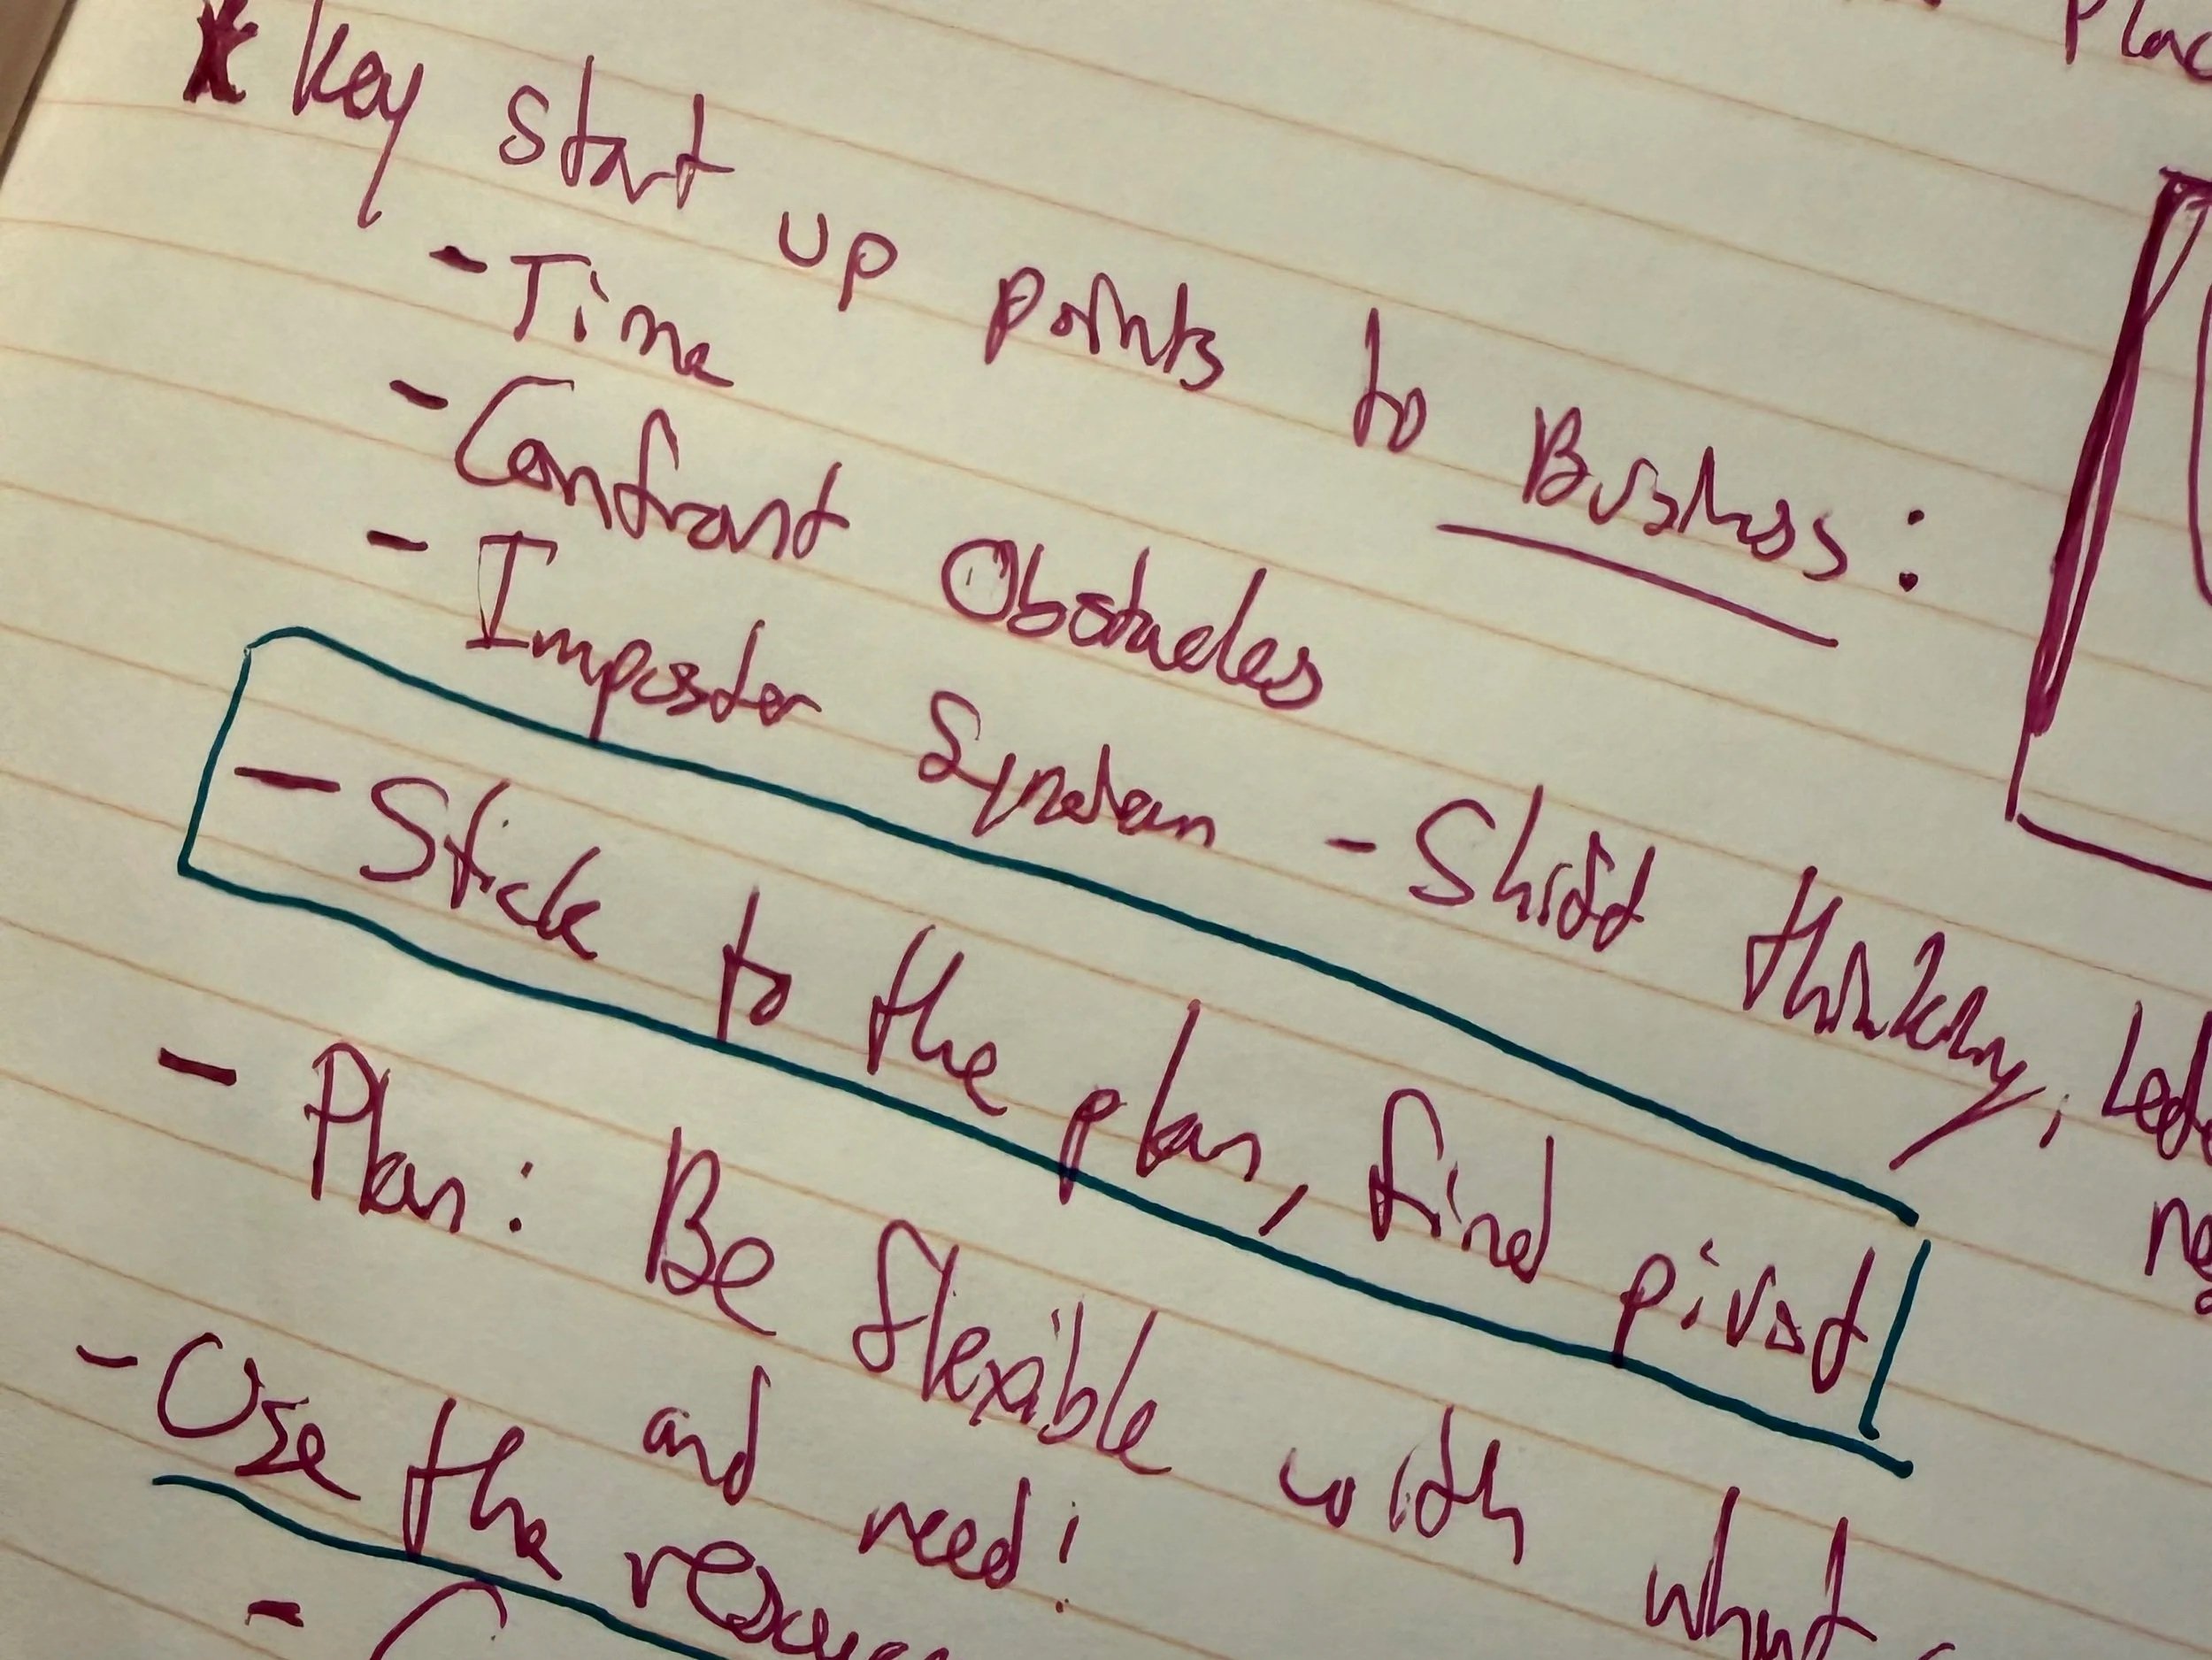 * Key start up points to Business:
- Time
- Confront Obstacles
- Imposter - Shift thinking,
- Stick to the plan, find pivot
- Plan: Be flexible with what
and need!
- Use the